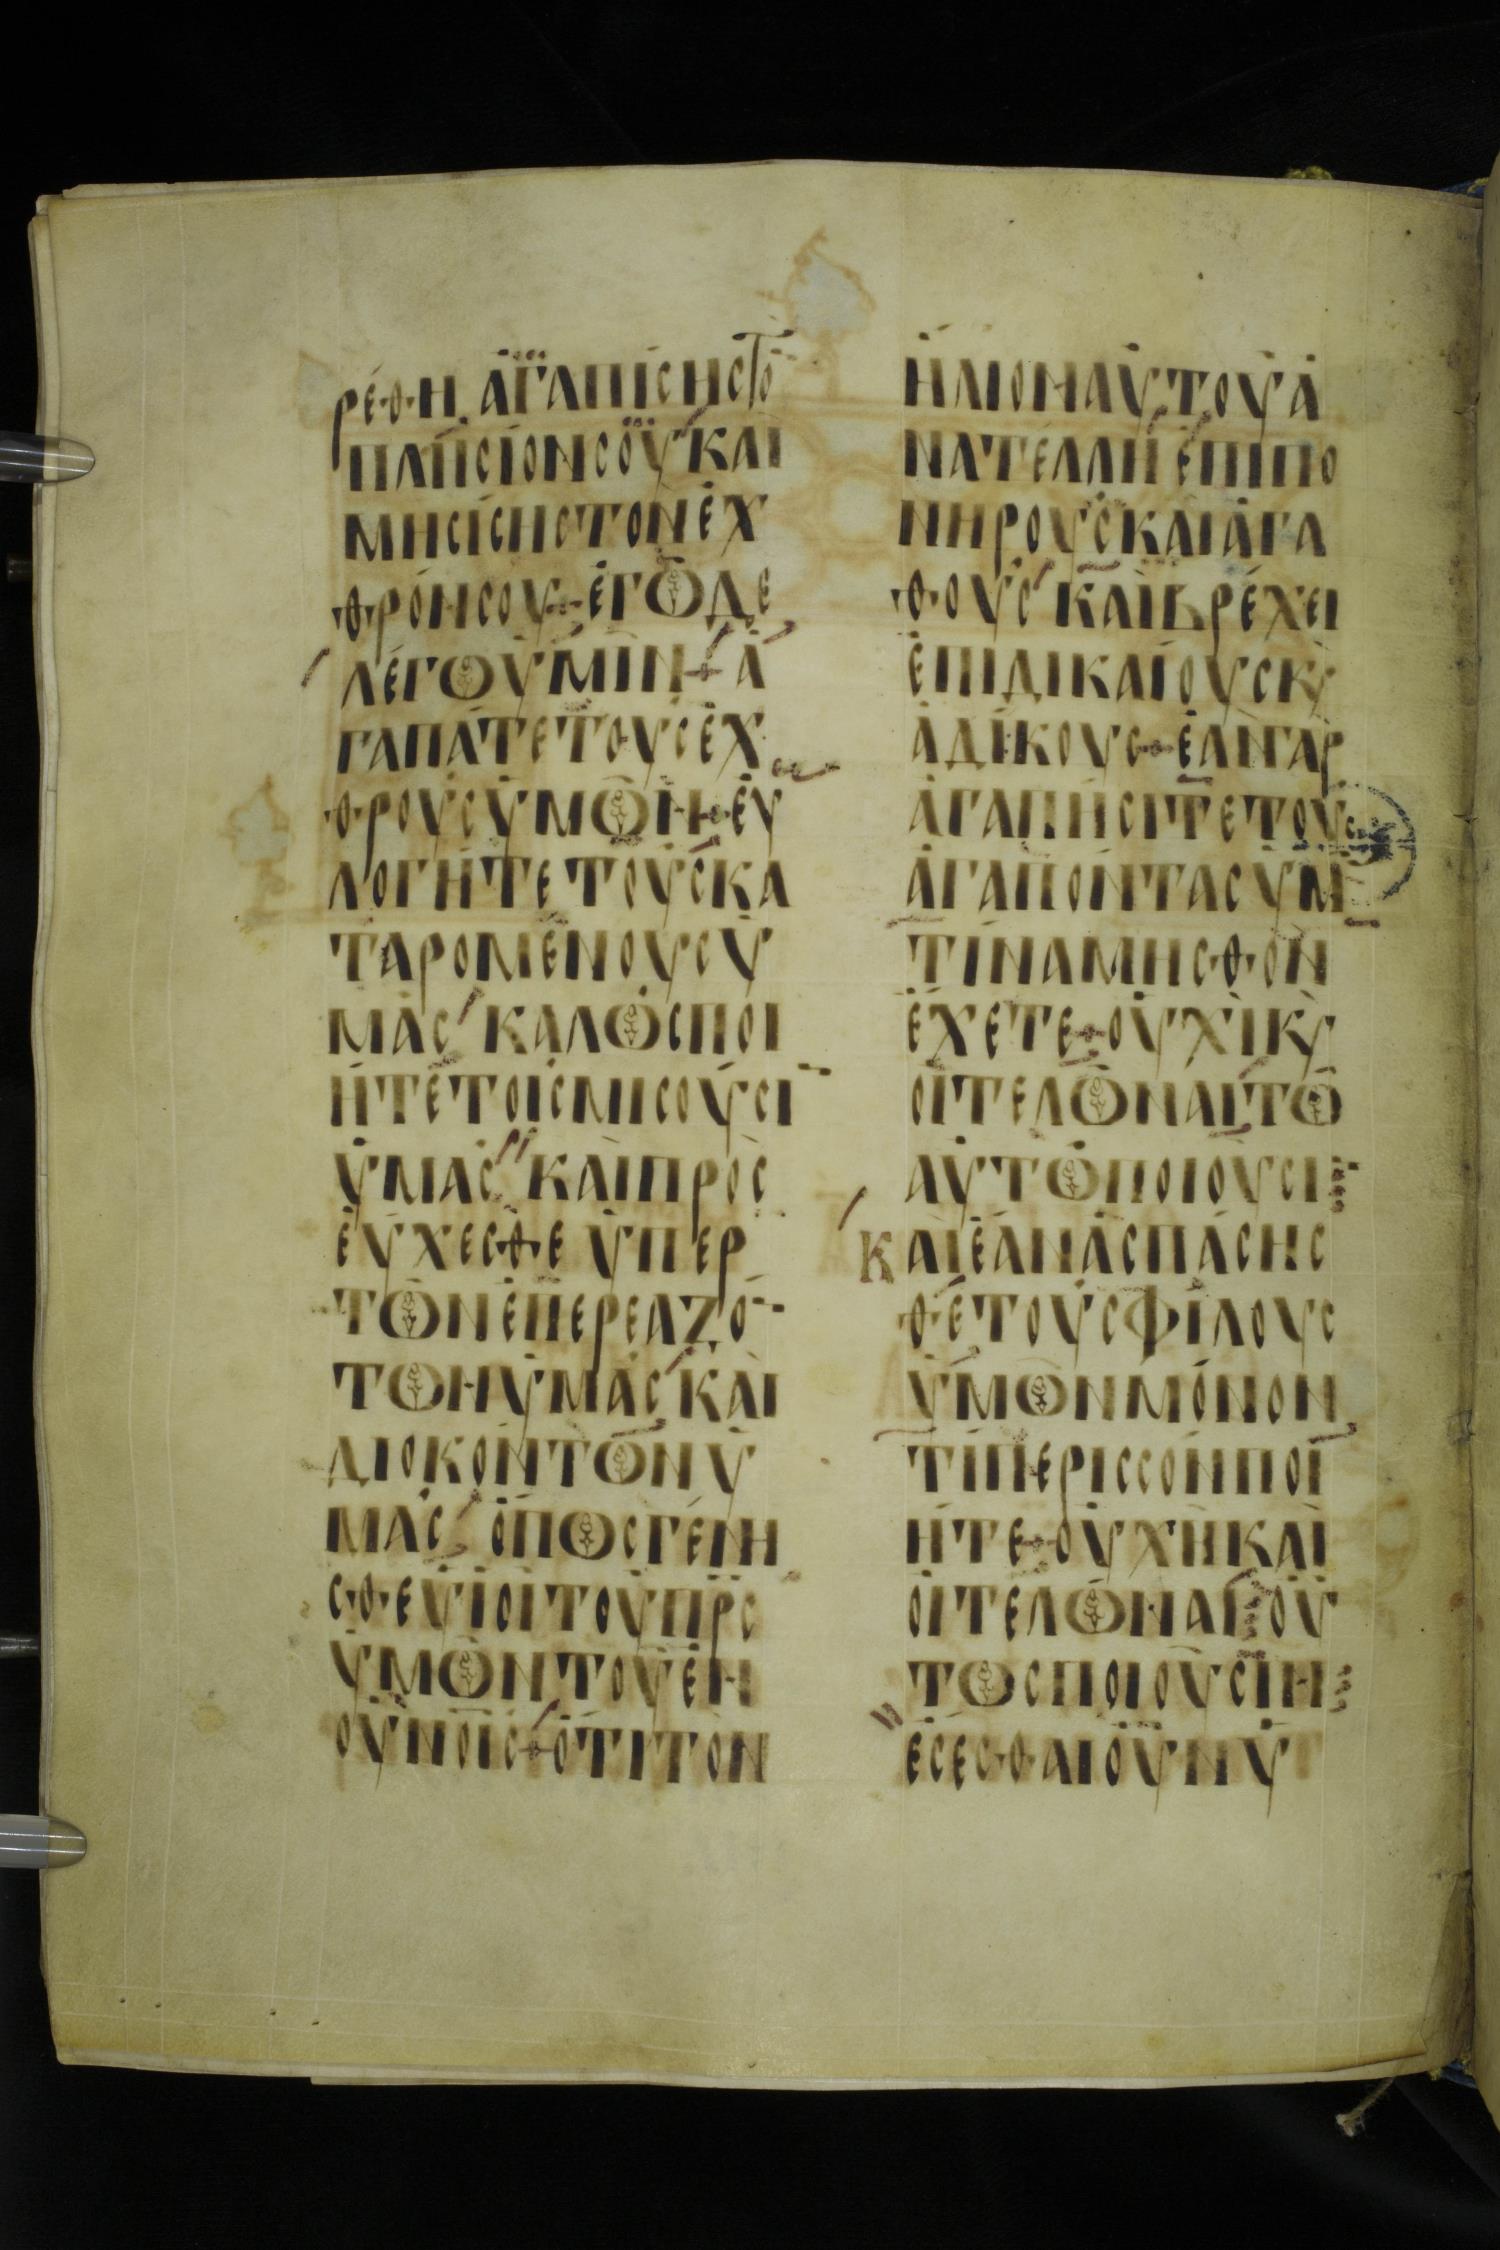 ΡΕΘΗ ΑΓΑΠΙϹΗϹΤΟ
ΠΛΗϹΙΟΝϹΟΥ ΚΑΙ
ΜΗϹΙϹΗϹΤΟΝΕΧ
ΘΡΟΝϹΟΥ · ΕΓΩΔΕ
ΛΕΓΩΥΜΙΝ + Α
ΓΑΠΑΤΕΤΟΥϹΕΧ
ΘΡΟΥϹΥΜΩΝ + ΕΥ
ΛΟΓΗΤΕΤΟΥϹΚΑ
ΤΑΡΟΜΕΝΟΥϹΥ
ΜΑϹ ΚΑΛΩϹΠΟΙ
ΗΤΕΤΟΙϹΜΙϹΟΥϹΙ
ΥΜΑϹ ΚΑΙΠΡΟϹ
ΕΥΧΕϹΘΕ ΥΠΕΡ
ΤΩΝΕΠΕΡΕΑΖΟ
ΤΩΝΥΜΑϹ ΚΑΙ
ΔΙΟΚΟΝΤΩΝΥ
ΜΑϹ ΟΠΩϹΓΕΝΗ
ϹΘΕΥΙΟΙΤΟΥΠΡϹ
ΥΜΩΝΤΟΥΕΝ
ΟΥΝΟΙϹ + ΟΤΙΤΟΝ
ΗΛΙΟΝΑΥΤΟΥΑ
ΝΑΤΕΛΛΗΕΠΙΠΟ
ΝΗΡΟΥϹΚΑΙΑΓΑ
ΘΟΥϹ ΚΑΙΒΡΕΧΕΙ
ΕΠΙΔΙΚΑΙΟΥϹΚϗ
ΑΔΙΚΟΥϹ + ΕΑΝΓΑΡ
ΑΓΑΠΗϹΙΤΕΤΟΥϹ
ΑΓΑΠΟΝΤΑϹΥΜ
ΤΙΝΑΜΗϹΘΟΝ
ΕΧΕΤΕ + ΟΥΧΙΚϗ
ΟΙΤΕΛΩΝΑΙΤΩ
ΑΥΤΩΠΟΙΟΥϹΙ
ΚΑΙΕΑΝΑϹΠΑϹΗϹ
ΘΕΤΟΥϹΦΙΛΟΥϹ
ΥΜΩΝΜΟΝΟΝ
ΤΙΠΕΡΙϹϹΟΝΠΟΙ
ΗΤΕ + ΟΥΧΗΚΑΙ
ΟΙΤΕΛΩΝΑΙ ΟΥ
ΤΩϹΠΟΙΟΥϹΙΝ
ΕϹΕϹΘΑΙΟΥΝΥ